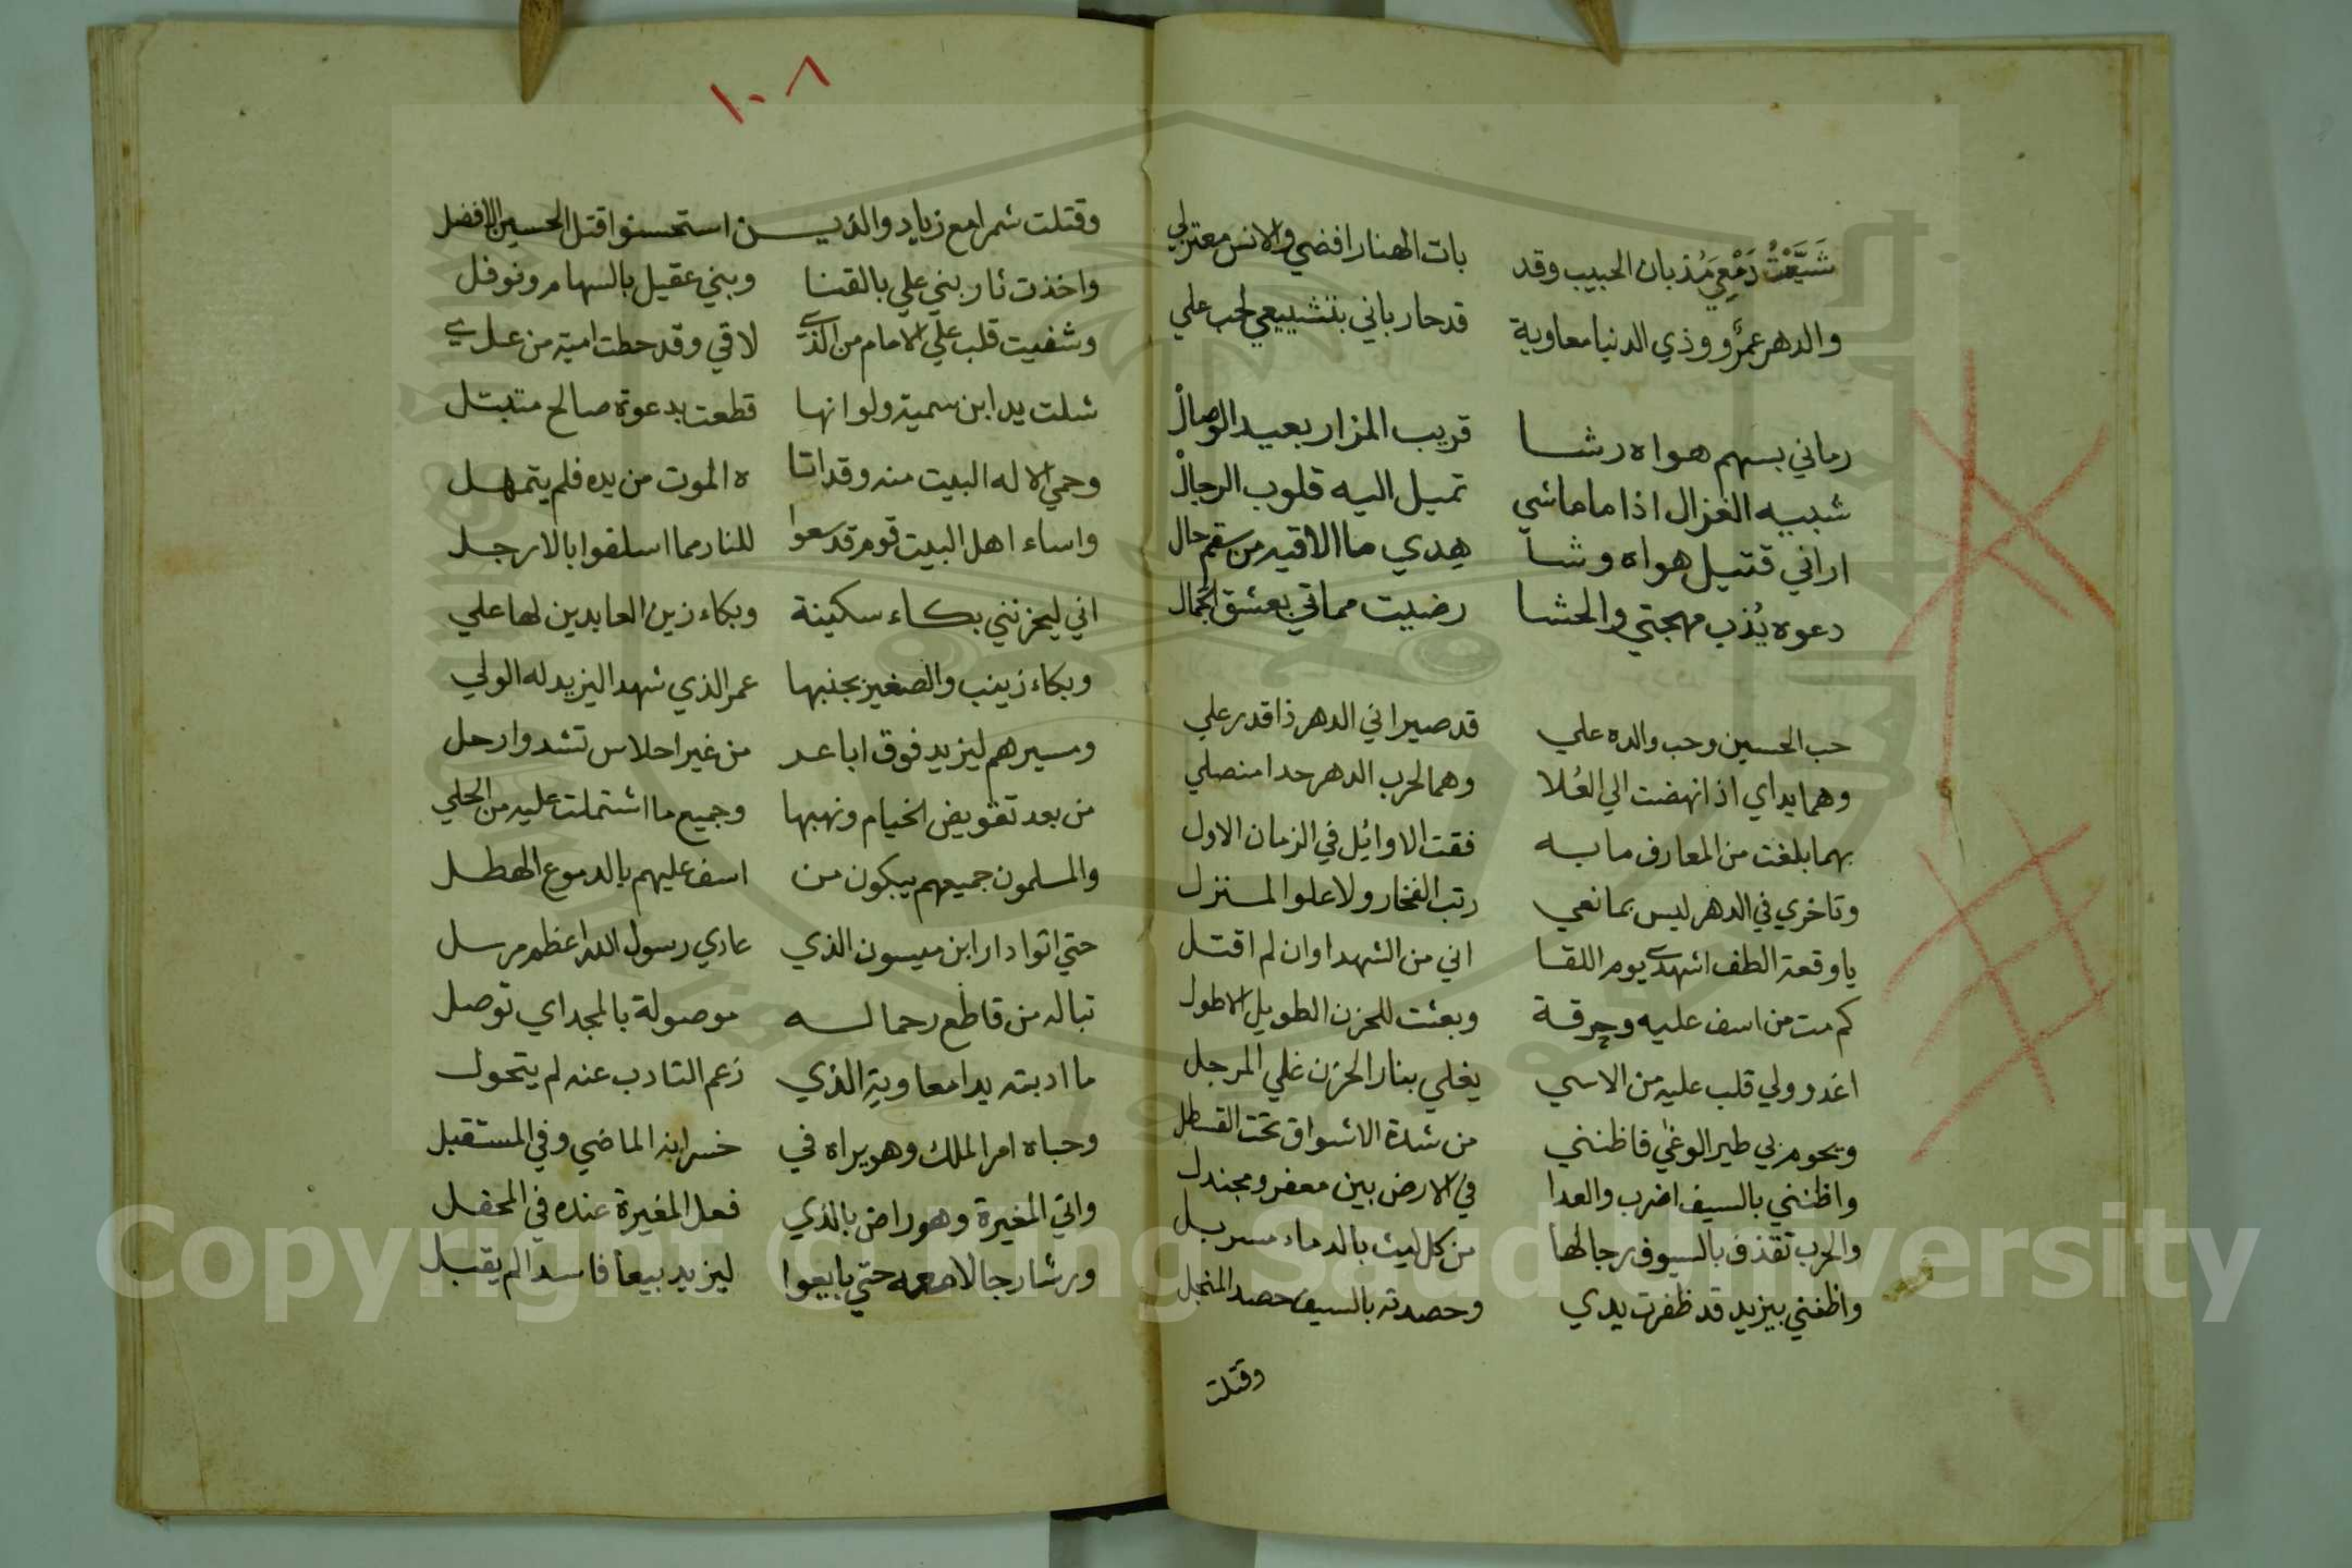 شَيَّعْتُ دَمْعِي مُذ بان الحبيب وقد بات الهنا رافضي والانس معتزلي
والدهر عمرٌو وذي الدنيا معاوية قد حارباني بتشييعي لحب علي
رماني بسهم هواه رشا قريب المزار بعيد الوصالْ
شبيه الغزال اذا ما ماشي تميل اليه قلوب الرجالْ
اراني قتيل هواه وشا هدي ما الاقيه من سقم حال
دعوه يُذب مهجتي والحشا رضيت مماتي بعشق الجمال
حب الحسين وحب والده علي قد صيراني الدهر ذا قدر علي
وهما يداي اذا نهضت الي العُلا وهما لحرب الدهر حدا منصلي
بهما بلغت من المعارف ما به فقت الاوائل في الزمان الاول
وتاخري في الدهر ليس بمانعي رتب الفخار ولا علو المنزل
يا وقعة الطف اشهدي يوم اللقا اني من الشهدا وان لم اقتل
كم مت من اسف عليه وحرقة وبعثت للحزن الطويل الاطول
اغدو ولي قلب عليه من الاسي يغلي بنار الحزن غلي المرجل
ويحوم بي طير الوغي فاظنني من شدة الاشواق تحت القسطل
واظنني بالسيف اضرب والعدا في الارض بين معفر ومجندل
والحرب تقذف بالسيوف رجالها من كل ليث بالدماء مسربل
واظنني بيزيد قد ظفرت يدي وحصدته بالسيف حصد المنجل
وقتلت
١٠٨
وقتلت شمرا مع زياد والذيـن استحسنوا قتل الحسين الافضل
واخذت ثار بني علي بالقنا وبني عقيل بالسهام ونوفل
وشفيت قلب علي الامام من الذي لاقي وقد حطت امية من علي
شلت يد ابن سمية ولو انها قطعت بدعوة صالح متبتل
وحمي الاله البيت منه وقد اتا ه الموت من يده فلم يتمهل
واساء اهل البيت قوم قد سعوا للنار مما اسلفوا بالارجل
اني ليحزنني بكاء سكينة وبكاء زين العابدين لها علي
وبكاء زينب والصغير بجنبها عمر الذي شهد اليزيد له الولي
ومسيرهم ليزيد فوق اباعد من غير احلاس تشد وارحل
من بعد تقويض الخيام ونهبها وجميع ما اشتملت عليه من الحلي
والمسلمون جميعهم يبكون من اسف عليهم بالدموع الهطل
حتي اتوا دار ابن ميسون الذي عادي رسول الله اعظم مرسل
تبا له من قاطع رحما له موصولة بالمجد اي توصل
ما ادبته يدا معاوية الذي زعم التادب عنه لم يتحول
وحباه امر الملك وهو يراه في خسرانه الماضي وفي المستقبل
واتي المغيرة وهو راض بالذي فعل المغيرة عنده في المحفل
ورشا رجالا معه حتي بايعوا ليزيد بيعا فاسدا لم يقبل
Copyright © King Saud University